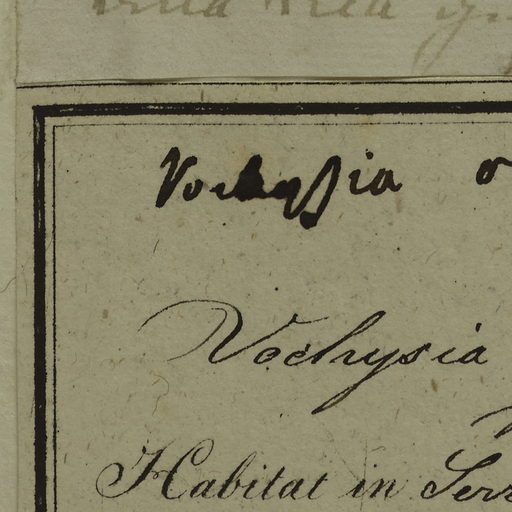 Vochysia o
Vochysia
Habitat in Serr